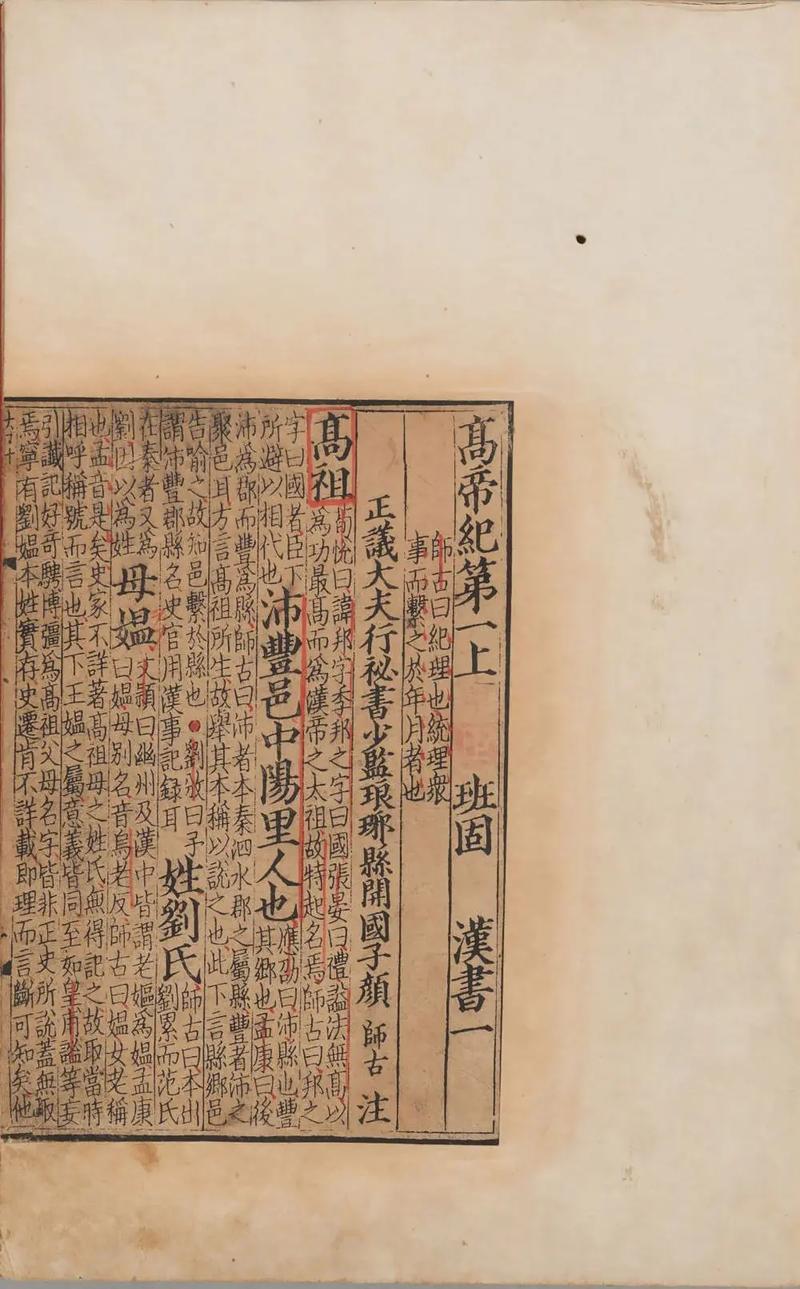 髙帝紀第一上 班固 漢書一
師古曰紀理也統理衆
事而繫之於年月者也
正議大夫行祕書少監琅邪縣開國子顔 師古 注
髙祖
荀悅曰諱邦字季邦之字曰國張晏曰禮謚法無髙以
為功最髙而為漢帝之太祖故特起名焉師古曰邦之
字曰國者臣下
所避以相代也
沛豐邑中陽里人也
應劭曰沛縣也豐
其鄉也孟康曰後
沛為郡而豐為縣師古曰沛者本秦泗水郡之屬縣豐者沛之
聚邑耳方言髙祖所生故舉其本稱以說之也此下言縣鄉邑
告喻之故知邑繫於縣也●劉攽曰予
謂沛豐郡縣名史官用漢事記録耳
姓劉氏
師古曰本出
劉累而范氏
在秦者又為
劉因以為姓
母媼
文穎曰幽州及漢中皆謂老嫗為媼孟康
曰媼母别名音烏老反師古曰媼女老稱
也孟音是矣史家不詳著髙祖母之姓氏無得記之故取當時
相呼稱號而言也其下王媼之屬意義皆同至如皇甫謐等妄
引讖記好竒騁博彊為髙祖父母名字皆非正史所說蓋無取
焉寧有劉媼本姓實存史遷肯不詳載即理而言斷可知矣他